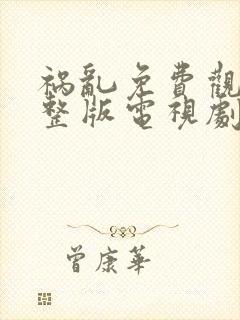 祸亂免費觀
整版電視劇
曾康華